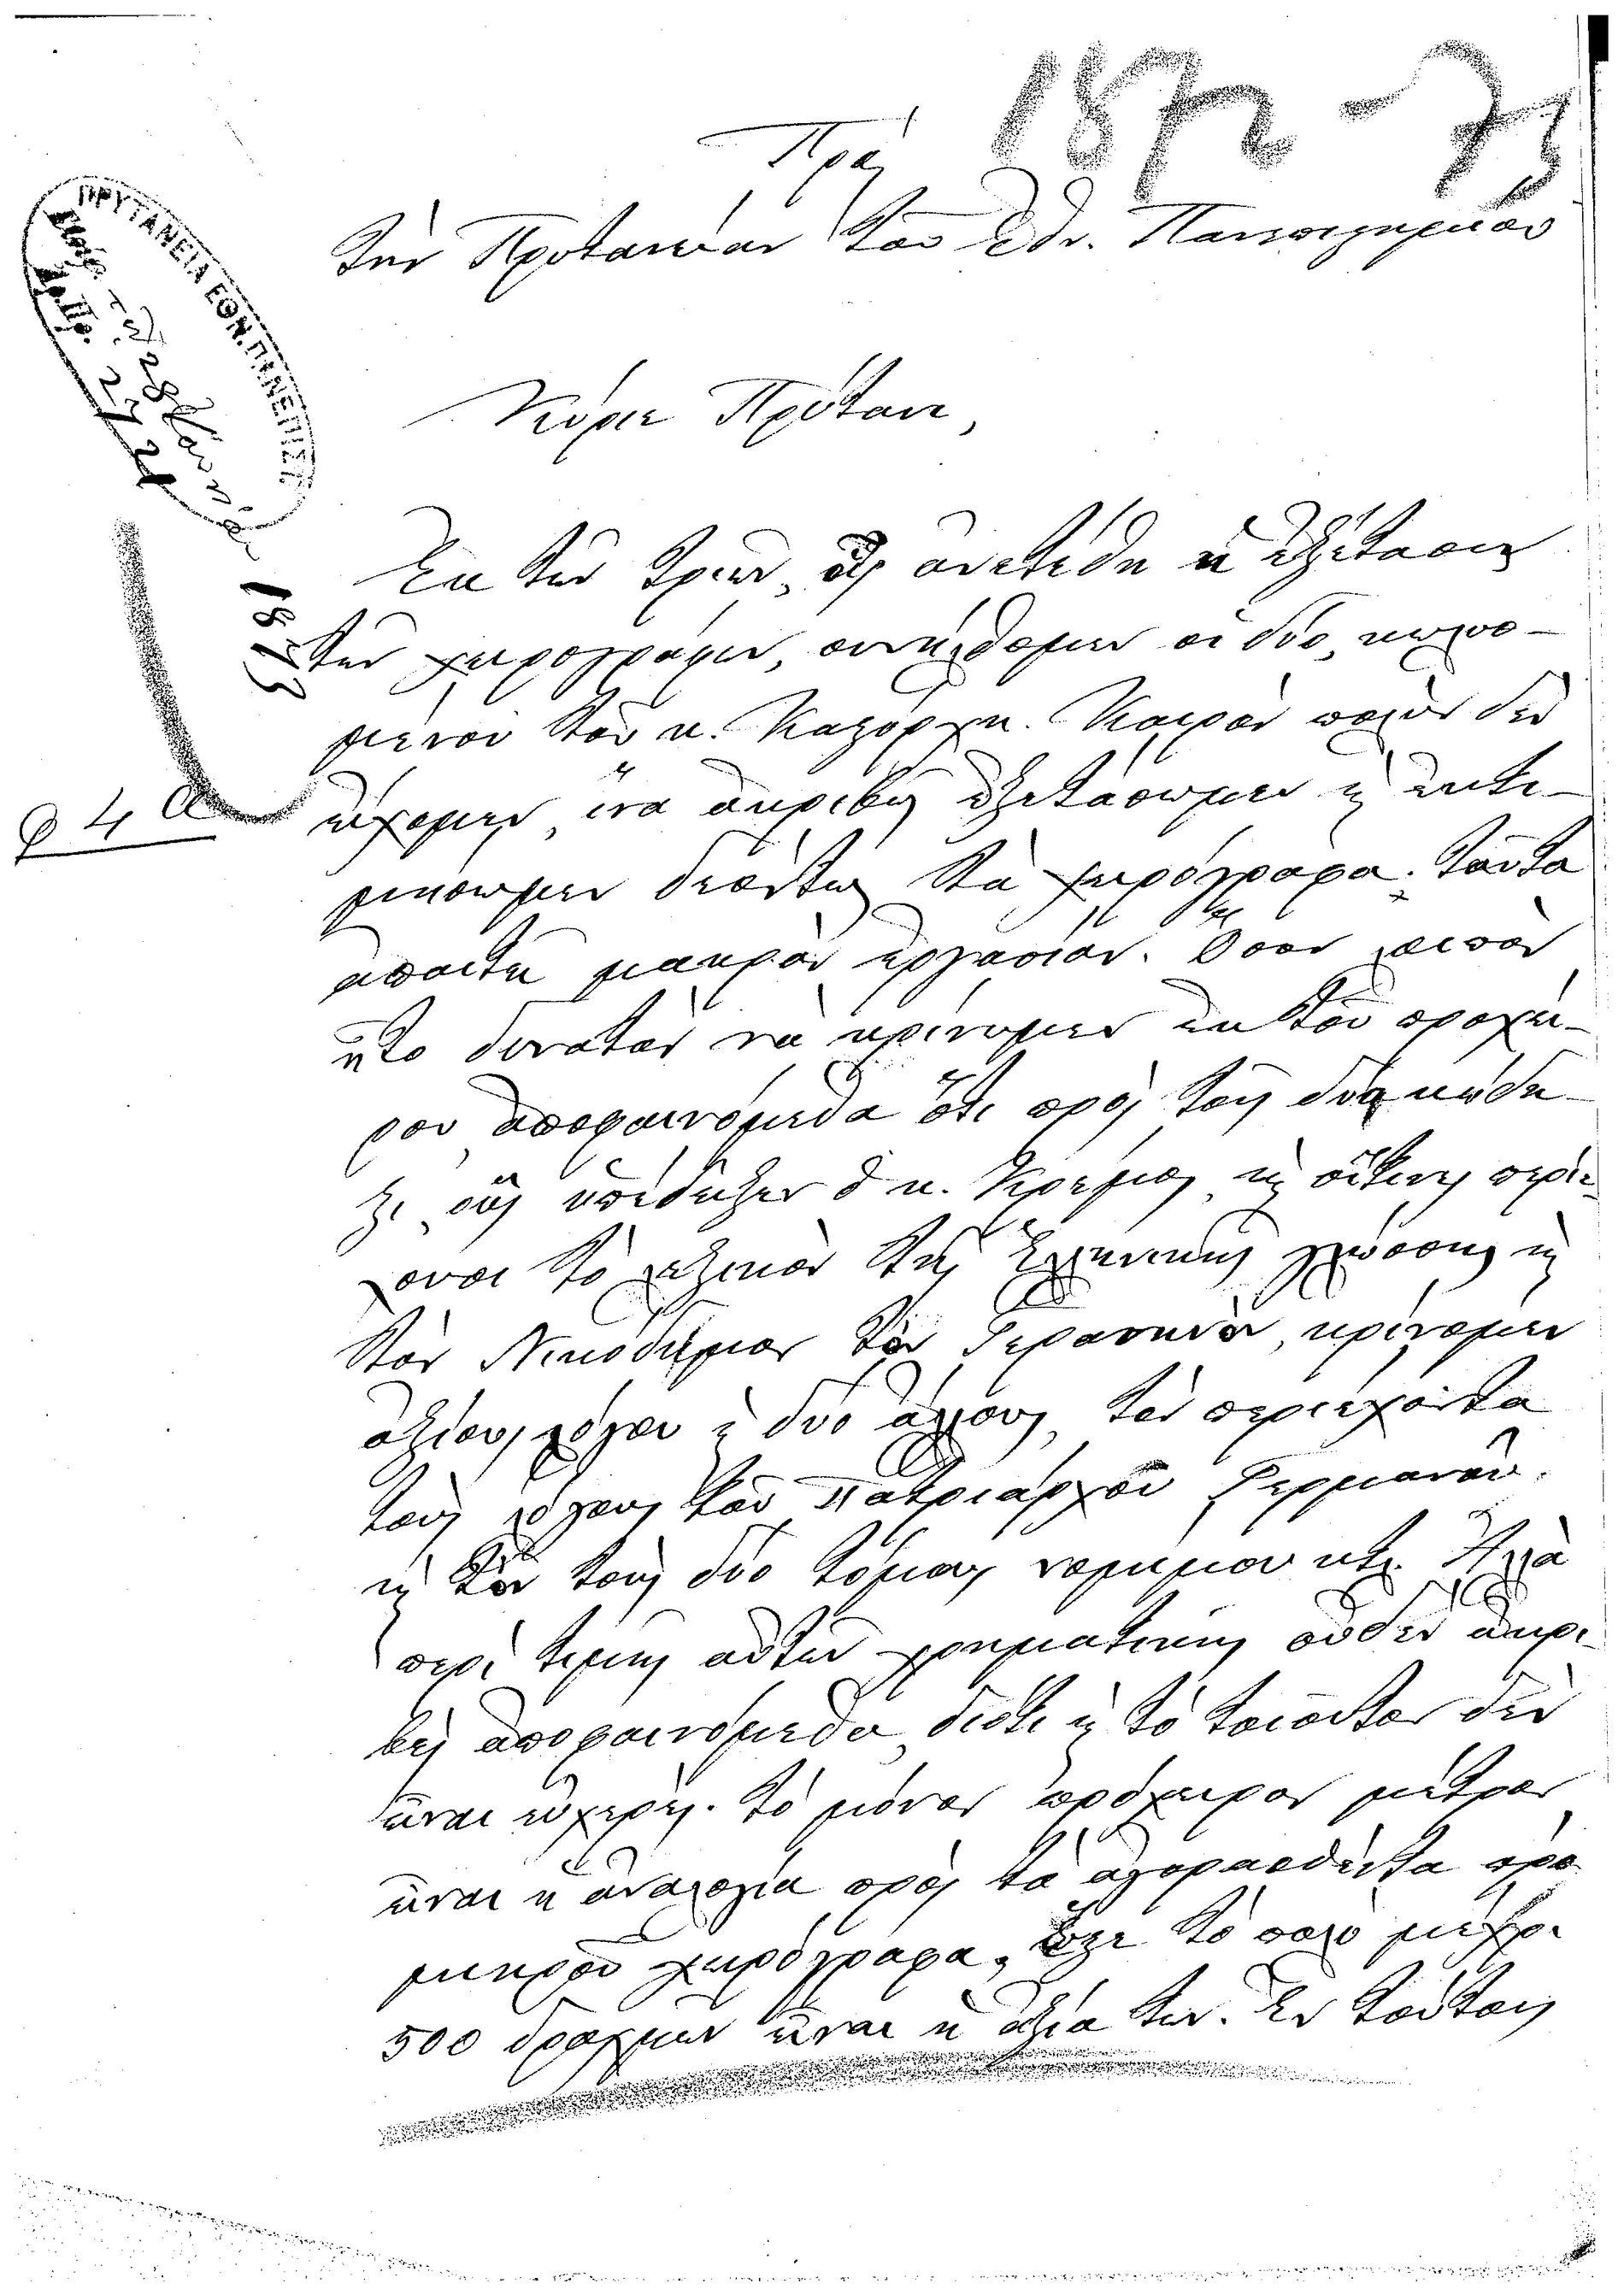 1872-73
Πρὸς
τὴν Πρυτανείαν τοῦ Ἐθν. Πανεπιστημίου
ΠΡΥΤΑΝΕΙΑ ΕΘΝ. ΠΑΝΕΠΙΣΤ
28
1873
Κύριε Πρύτανι,
Ἐκ τῶν τριῶν, οἷς ἀνετέθη ἡ ἐξέτασις
τῶν χειρογράφων, συνήλθομεν οἱ δύο, κωλυο-
μένου τοῦ κ. Καλόρχη. Καιρὸν πολὺν δὲν
εἴχομεν, ἵνα ἀκριβῶς ἐξετάσωμεν κ ἐκτι-
μήσωμεν δεόντως τὰ χειρόγραφα· ταῦτα
ἀπαιτεῖ μακρὰν ἐργασίαν. Ὅσον λοιπὸν
ἦτο δυνατὸν νὰ κρίνωμεν ἐκ τοῦ προχεί-
ρου, ἀποφαινόμεθα ὅτι πρὸς τοῖς δύο κώδη-
ξι, οὓς ὑπέδειξεν ὁ κ. Κρέμος, κ οἵτινες περιέ-
χουσι τὸ λεξικὸν τῆς Ἑλληνικῆς γλώσσης κ
τὸν Νικόδημον τὸν Γερασηνὸν, κρίνομεν
ἀξίους λόγου κ δύο ἄλλους, τὸν περιέχοντα
τοὺς λόγους τοῦ Πατριάρχου Γερμανοῦ.
κ τὸν τοὺς δύο τόμους νομίμου κτλ. Ἀλλὰ
περὶ τιμῆς αὐτῶν χρηματικῆς οὐδὲν ἀκρι-
βῶς ἀποφαινόμεθα, διότι κ τὸ τοιοῦτον δὲν
εἶναι εὐχερές. τὸ μόνον πρόχειρον μέτρον
εἶναι ἡ ἀναλογία πρὸς τὰ ἀγορασθέντα πρὸ
μικροῦ χειρόγραφα, ὥστε τὸ πολὺ μέχρι
500 δραχμῶν εἶναι ἡ ἀξία των. Ἐν τούτοις